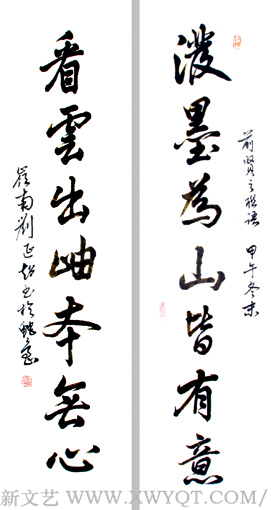 潑墨為山皆有意
前賢之聯語 甲午冬末
看雲出岫本無心
嶺南劉正
新文艺 WWW.XWYQT.COM/